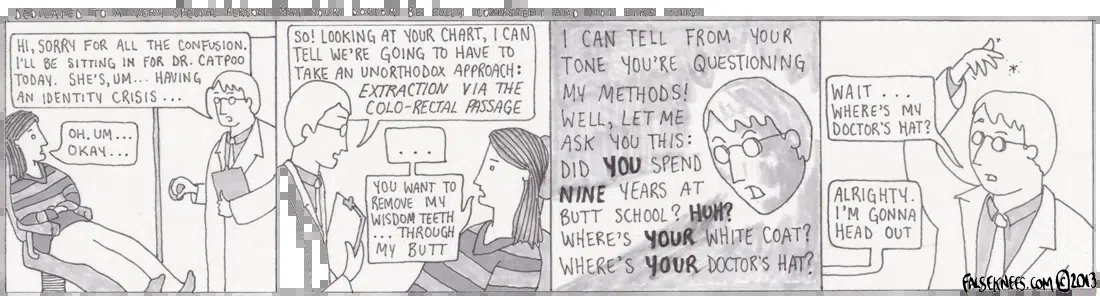 DEDICATED TO A VERY SPECIAL PERSON. MAY YOUR DOCTOR BE BOTH COMPETENT AND NOT LIKE THIS.
HI, SORRY FOR ALL THE CONFUSION.
I'LL BE SITTING IN FOR DR. CATPOO
TODAY. SHE'S, UM... HAVING
AN IDENTITY CRISIS...
OH. UM...
OKAY...
SO! LOOKING AT YOUR CHART, I CAN
TELL WE'RE GOING TO HAVE TO
TAKE AN UNORTHODOX APPROACH:
EXTRACTION VIA THE
COLO-RECTAL PASSAGE
...
YOU WANT TO
REMOVE MY
WISDOM TEETH
... THROUGH
MY BUTT
I CAN TELL FROM YOUR
TONE YOU'RE QUESTIONING
MY METHODS!
WELL, LET ME
ASK YOU THIS:
DID YOU SPEND
NINE YEARS AT
BUTT SCHOOL? HUH?
WHERE'S YOUR WHITE COAT?
WHERE'S YOUR DOCTOR'S HAT?
WAIT ...
WHERE'S MY
DOCTOR'S HAT?
ALRIGHTY.
I'M GONNA
HEAD OUT
FALSEKNEES.COM ©2013